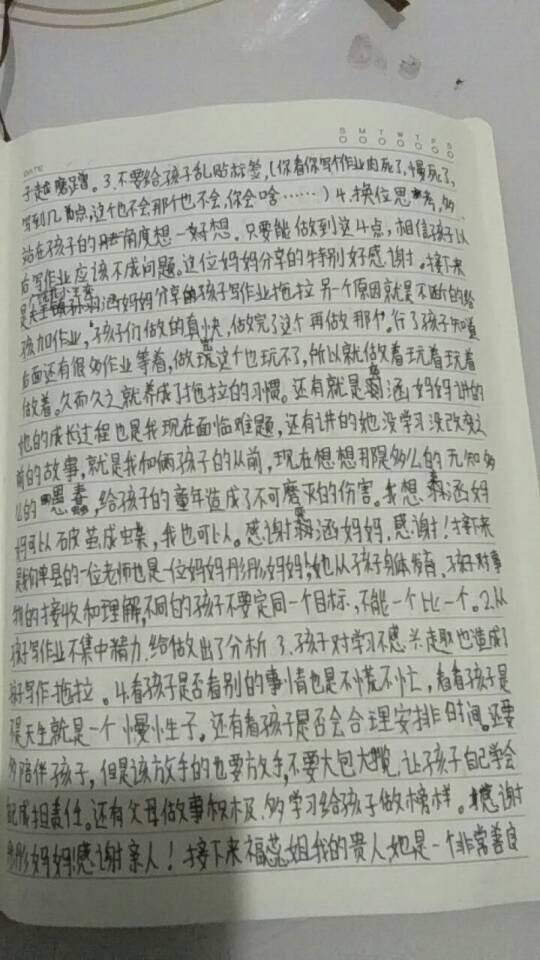 DATE
S M T W T F S
子越磨蹭。3.不要给孩子乱贴标签,(你看你写作业肉死了,慢死了,
写到几点,这个也不会那个也不会,你会啥……)4.换位思考,多
站在孩子的角度想一好想。只要能做到这4点,相信孩子以
后写作业应该不成问题。这位妈妈分享的特别好感谢。接下来
是 涵妈妈分享的孩子写作业拖拉另一个原因就是不断的给
孩加作业,孩子们做的真快,做完了这个再做那个。行了孩子知道
后面还有很多作业等着,做完这个也玩不了,所以就做着玩着玩着
做着。久而久之就养成了拖拉的习惯。还有就是 涵妈妈讲的
她的成长过程也是我现在面临难题,还有讲的她没学习没改变之
前的故事,就是我和俩孩子的从前,现在想想那是多么的无知多
么的愚蠢,给孩子的童年造成了不可磨灭的伤害。我想 涵妈
妈可以破茧成蝶,我也可以。感谢 涵妈妈,感谢!接下来
是我们单县的一位老师也是一位妈妈彤彤妈妈,她从孩子身体发育、孩子对事
物的接收和理解,不同的孩子不要定同一个目标,不能一个比一个。2.从
孩子写作业不集中精力.给做出了分析 3.孩子对学习不感兴趣也造成了
孩子写作拖拉。4.看孩子是否看别的事情也是不慌不忙,看看孩子是
不是天生就是一个慢性子。还有看孩子是否会合理安排时间。还要
多陪伴孩子,但是该放手的也要放手,不要大包大揽,让孩子自己学会
自己成担责任。还有父母做事积极.多学习给孩子做榜样。感谢
彤彤妈妈!感谢亲人!接下来福蕊姐我的贵人,她是一个非常善良